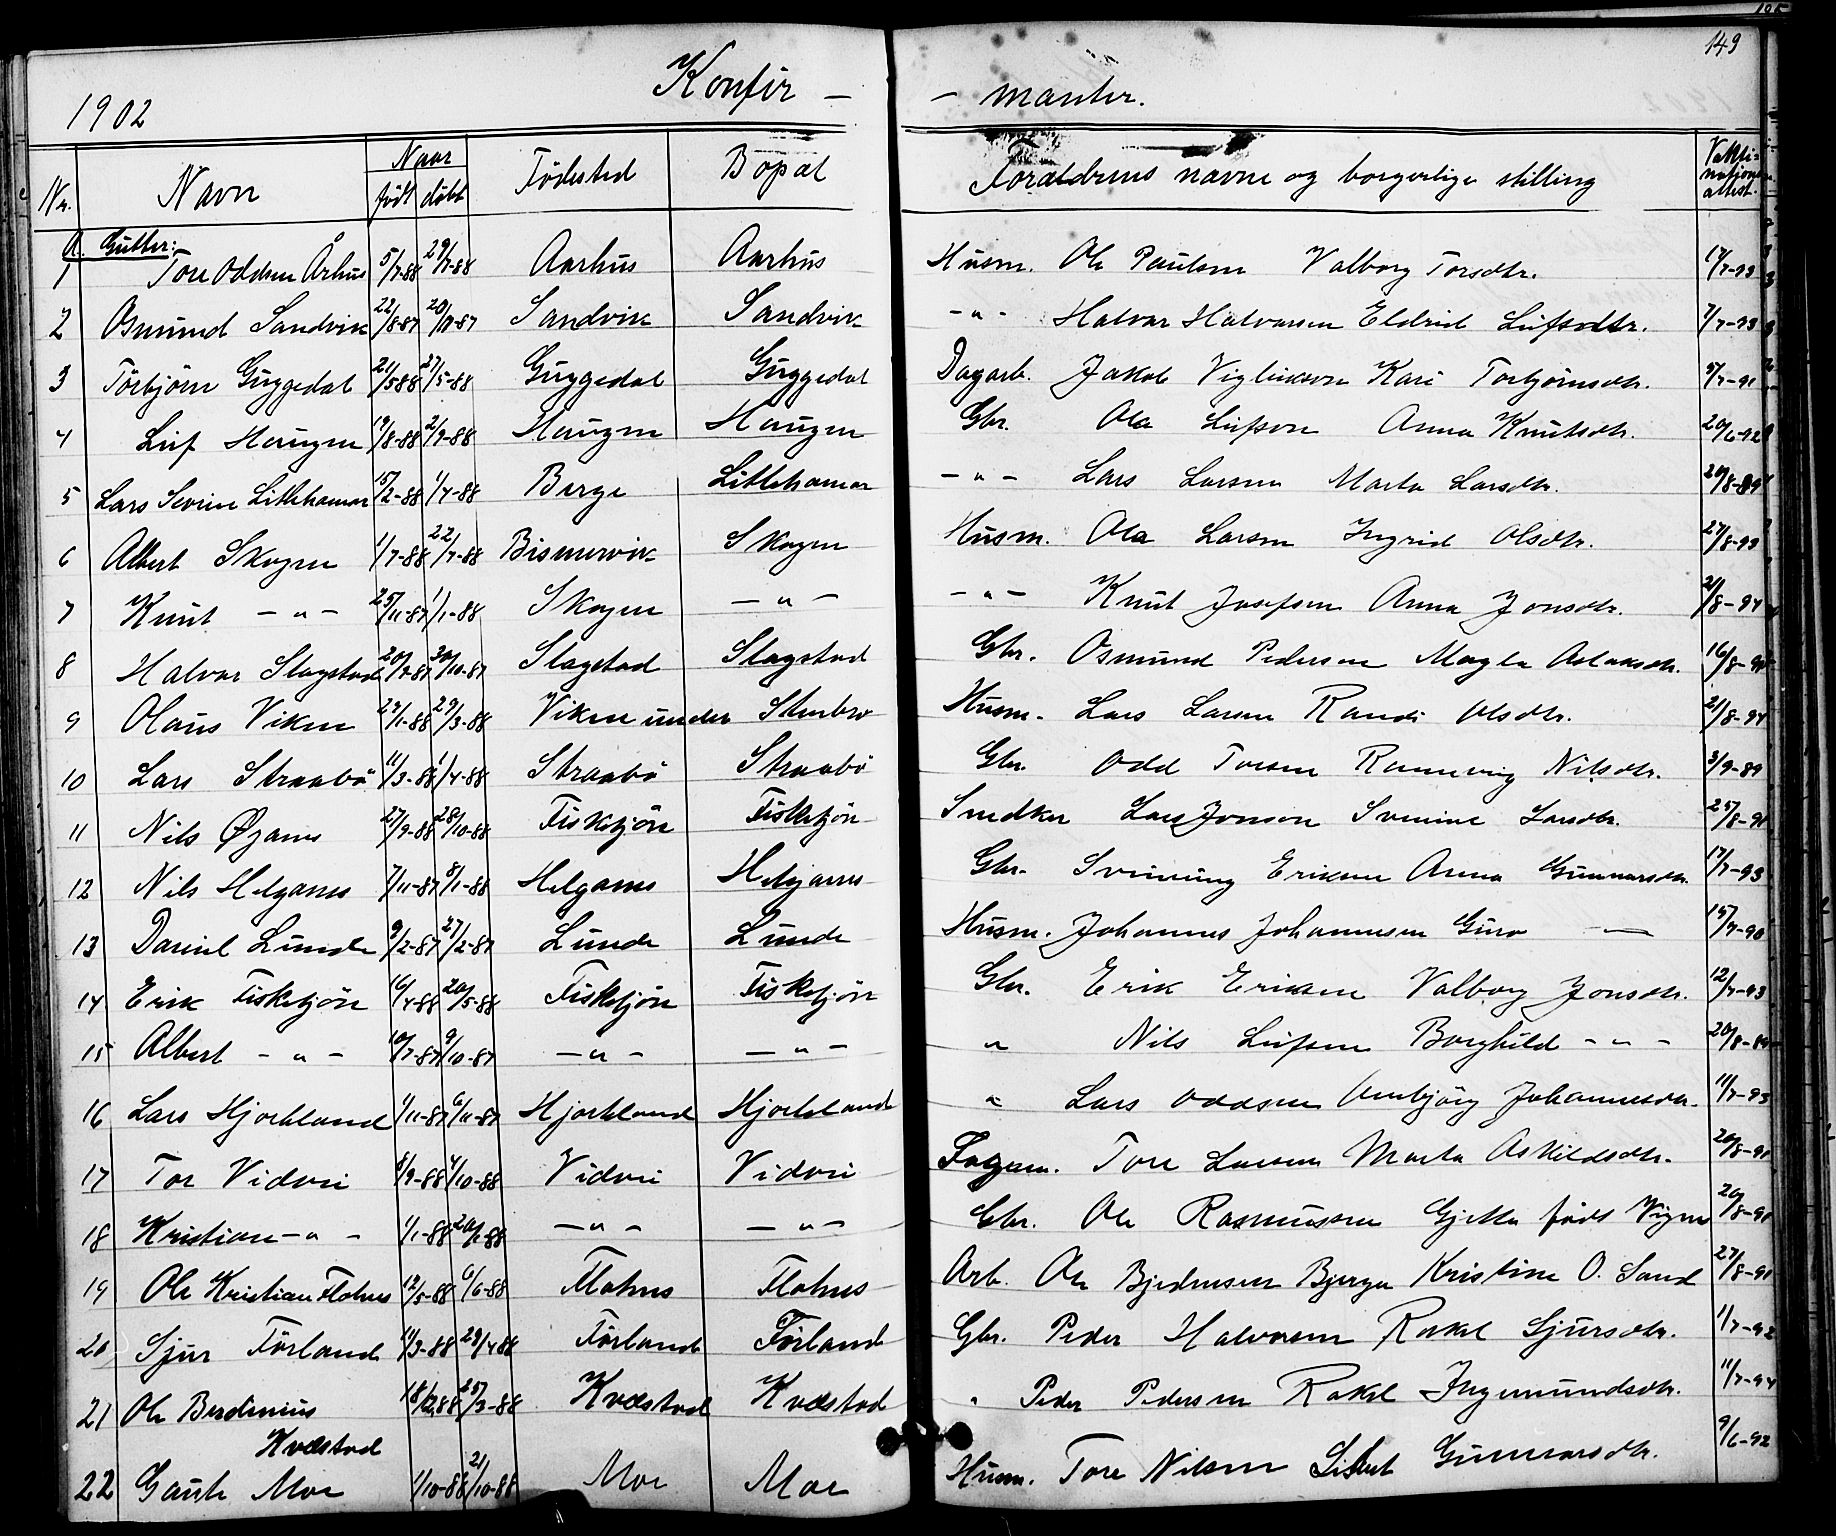 149
1902 Konfir - - manter.
Nr. Navn Naar født døbt Födested Bopæl Forældrenes navne og borgerlige stilling Vaksinationsattest.
A. Gutter:
1 Tore Oddsen Århus 5/7-88 29/7-88 Aarhus Aarhus Husm. Ole Paulsen Valborg Torsdtr. 17/7-93
2 Osmund Sandvik 22/8-87 Sandvik Sandvik -"- Halvar Halvarsen Eldrid Leifsdtr. 7/7-93
3 Torbjörn Guggedal 21/5 88 27/5-88 Guggedal Guggedal Dagarb. Jakob Vigleikson Kari Torbjörnsdtr. 5/7-91
4 Leif Haugen 19/8-88 2/9-88 Haugen Haugen Gbr. Ola Leifson Anna Knutsdtr. 20/6-92
5 Lars Severin Litlehamar 15/2-88 1/4-88 Berge Litlehamar -"- Lars Larsen Marta Larsdtr. 20/8-89
6 Albert Skogen 1/7-88 22/7-88 Bismervik Skogen Husm. Ola Larsen Ingrid Olsdtr. 27/8-93
7 Knut -"- 25/11-87 1/1-88 Skogen -"- -"- Knut Josefsen Anna Jonsdtr. 21/8-94
8 Halvar Slagstad 20/10-87 Slagstad Slagstad Gbr. Osmund Pedersen Magla Aslaksdtr. 16/8-90
9 Olaus Viken 29/3-88 Viken under Stenbro Husm. Lars Larsen Randi Olsdtr. 21/8-94
10 Lars Straabö 11/3-88 1/4-88 Straabö Straabö Gbr. Odd Torsen Rannveig Nilsdtr. 3/9-89
11 Nils Øganes 27/9-88 28/10-88 Fisketjön Fisketjön Snedker Lars Jonson Sverine Larsdtr. 25/8-91
12 Nils Helganes 7/11-87 8/1-88 Helganes Helganes Gbr. Svening Eriksen Anna Gunnarsdtr. 17/7-93
13 Daniel Lunde 9/2-87 27/2-87 Lunde Lunde Husm. Johannes Johannesen Guro — 15/7-90
14 Erik Fisketjön 16/4-88 20/5-88 Fisketjön Fisketjön Gbr. Erik Eriksen Valborg Jonsdtr. 12/7-93
15 Albert -"- 10/7-87 9/10-87 -"- -"- " Nils Leifsen Borghild -"- 20/8-89
16 Lars Hjortland 1/11-87 6/11-87 Hjorteland Hjorteland " Lars Oddsen Arnbjörg Johannesdtr. 11/7-93
17 Tor Vidvei 8/9-88 4/10-88 Vidvei Vidvei Tore Larsen Marta Askildsdtr. 20/8-91
18 Kristian -"- 1/1-88 -"- -"- Gbr. Ole Rasmussen Gjetta född Vigen 20/8-91
19 Ole Kristian Flotnes 12/5-88 6/6-88 Flotnes Flotnes Arb. Ole Bjednesen Bjerga Kristine O. Sand 27/8-91
20 Sjur Førland 11/3-88 29/4 88 Førland Førland Gbr. Peder Halvorsen Rakel Sjursdtr. 11/7-92
21 Ole Berdinius 18/2 88 25/3-88 Kvæstad Kvæstad " Peder Pedersen Rakel Ingemundsdtr. 11/7-94
Kvæstad
22 Gaute Moe 1/10-88 21/10-88 Moe Moe Husm. Tore Nilsen Gunnarsdtr. 9/6-92